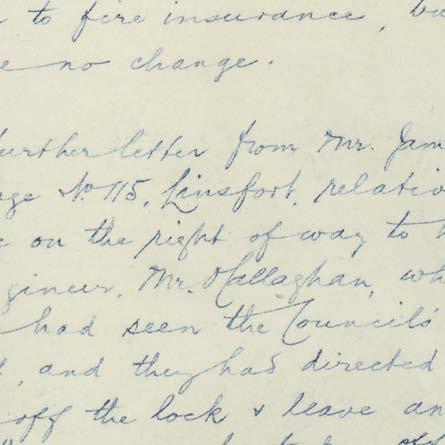 to fire insurance, bu
e no change.
further letter from Mr. Jam
age No. 115, Linsfort, relatio
e on the right of way to h
gineer, Mr. O'Callaghan, wh
had seen the Councils'
d, and they had directed
off the lock & leave an